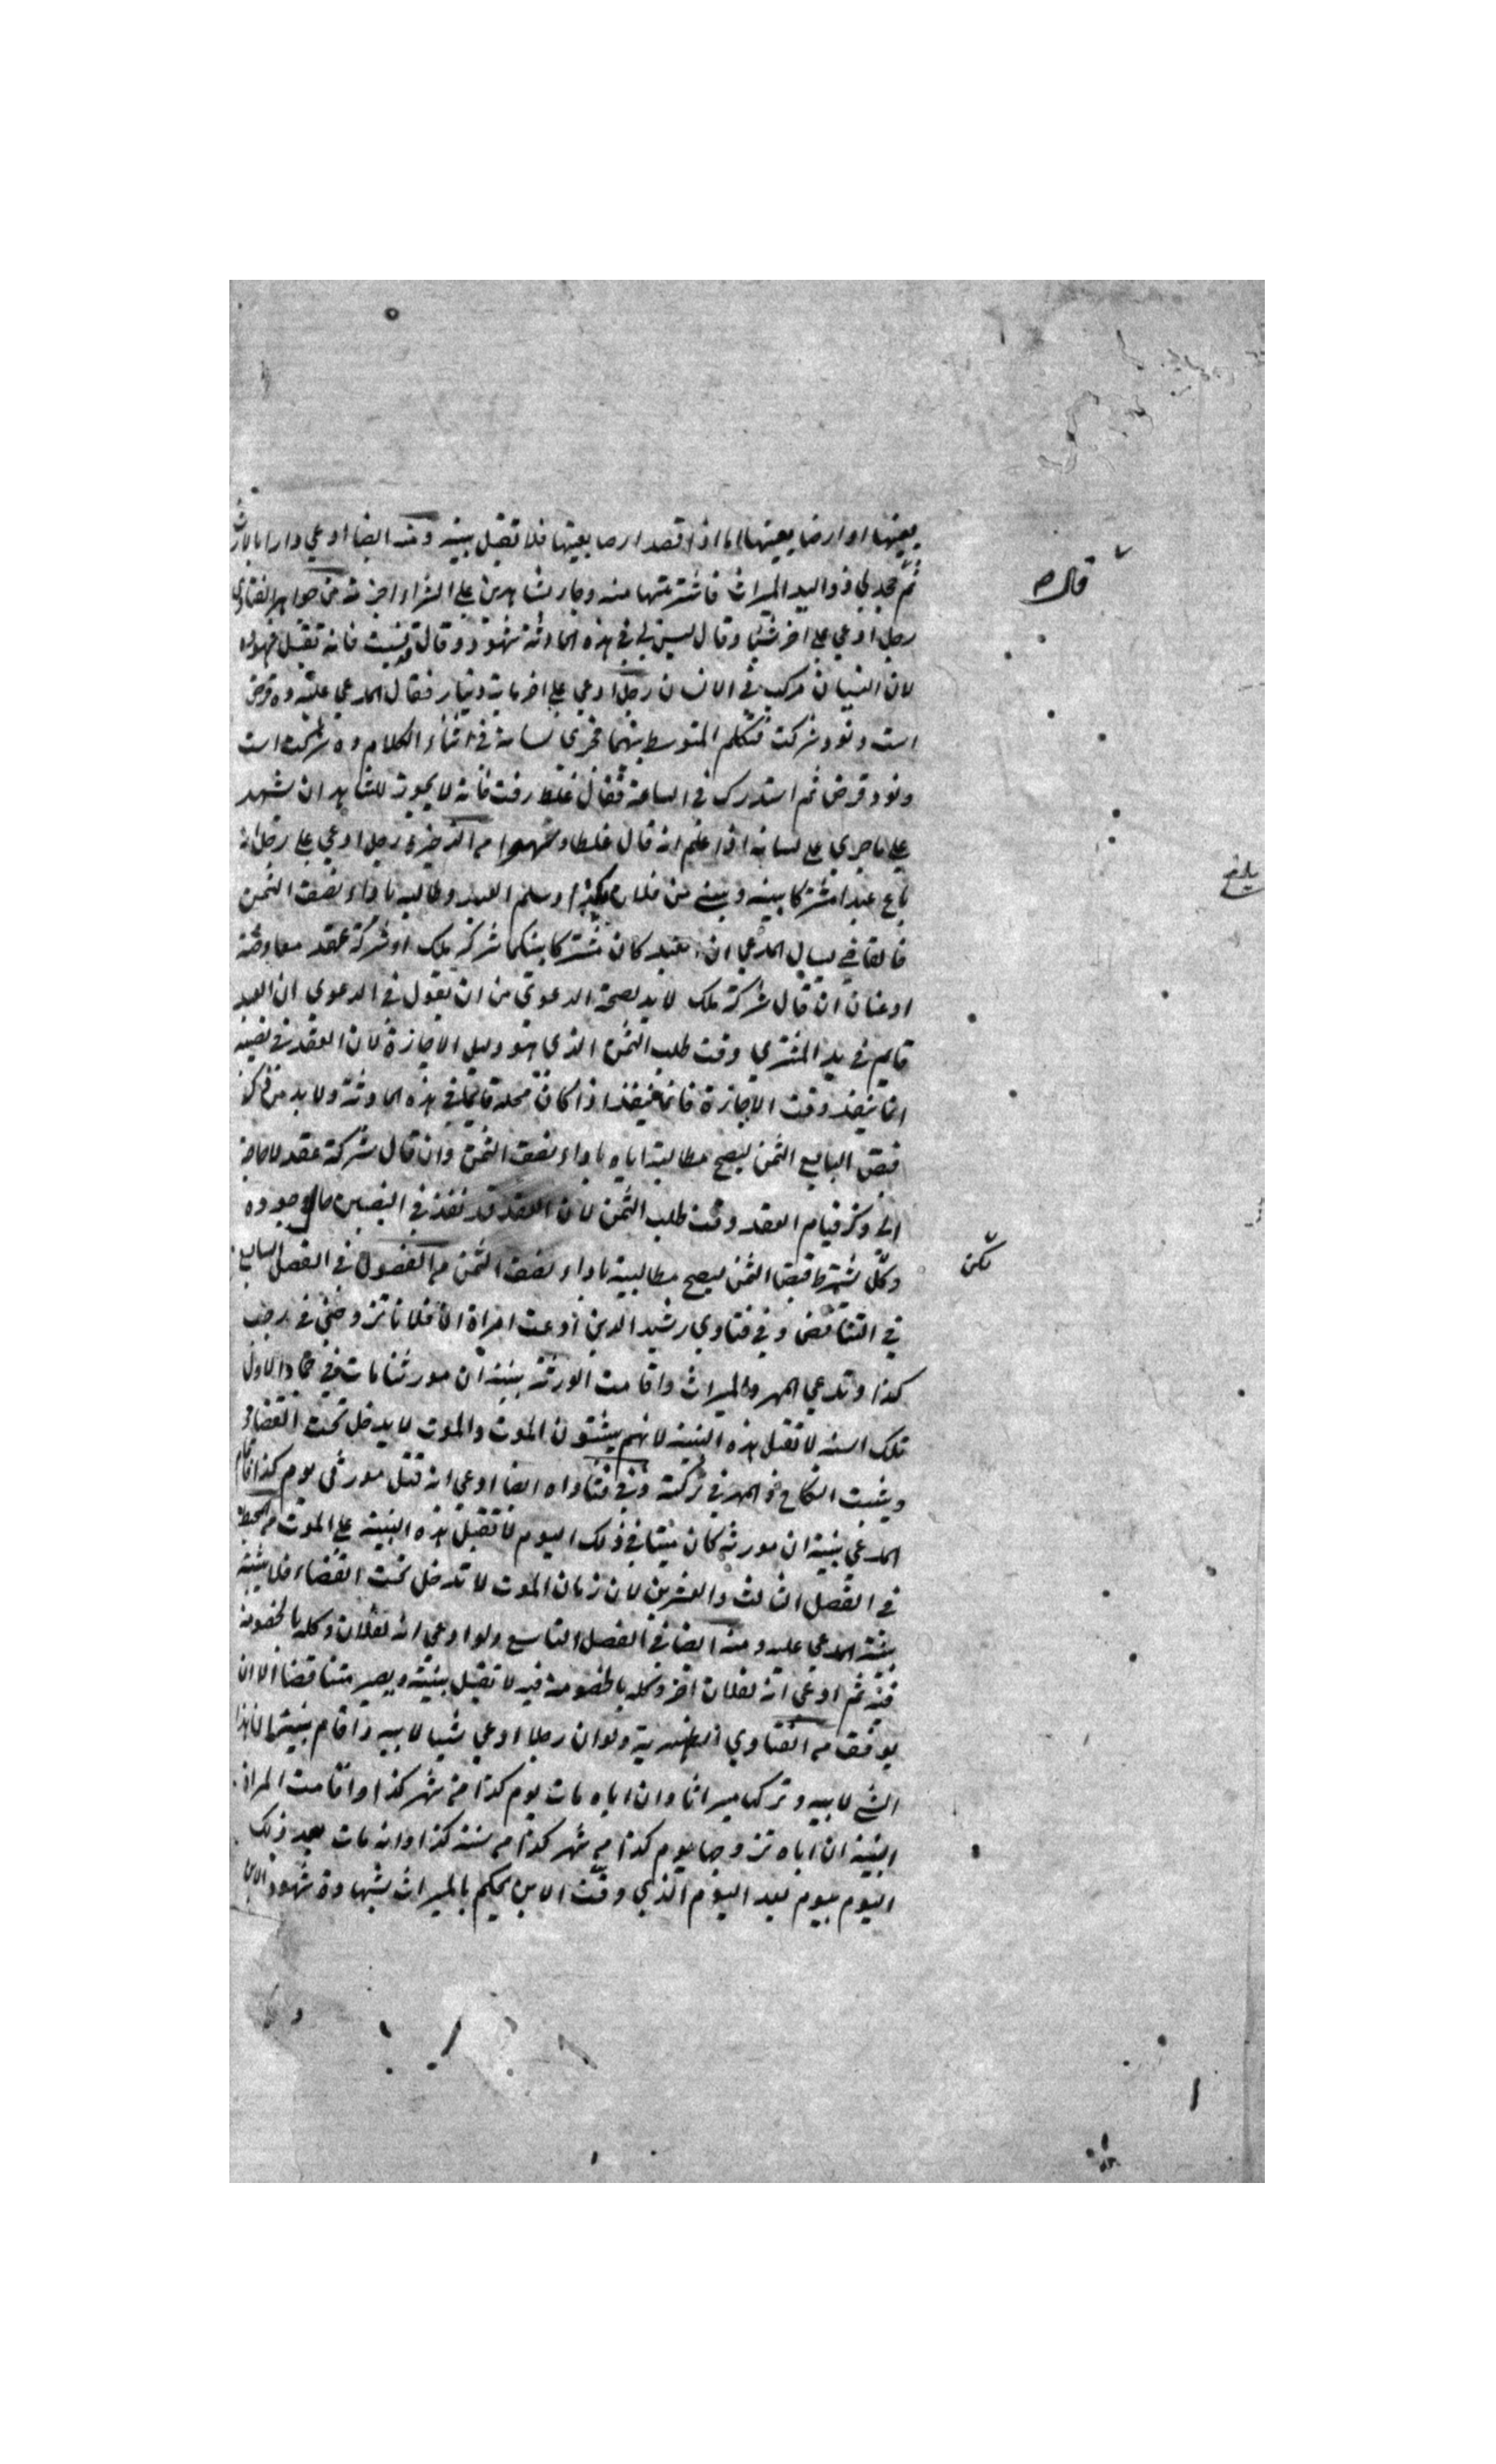 بعينها او ارضا بعينها اما اذا قصد ارضا بعينها فلا تقبل بينته ومنه ايضا ادعي دارا بالارث
ثم جحد لي ذو اليد الميراث فاشتريتها منه وجاء بشاهدين علي الشراء من جواهر الفتاوي
قال
رجل ادعي علي اخر شيئا وقال ليس لي في هذه الحادثة شهود وقال نسيت فانه تقبل شهوده
لان النسيان مركب في الانسان رجل ادعي علي اخر مائة دينار فقال المدعي عليه ده قرض
است ونود شركت فتكلم المتوسط بينهما فجري لسانه في اثناء الكلام ده شركت است
ونود قرض ثم استدرك في الساعة فقال غلط رفت فانه لا يجوز للشاهد ان يشهد
علي ما جري علي لسانه اذا علم انه قال غلطا وسهوا من الذخيرة رجل ادعي علي رجل انه
باع عبدا مشتركا بينه وبيني من فلان بكذا وسلم العبد وطالبه باداء نصف الثمن
فالقاضي يسال المدعي ان العبد كان مشتركا بينكما شركة ملك او شركة عقد مفاوضة
او عنان ان قال شركة ملك لا بد لصحة الدعوي من ان يقول في الدعوي ان العبد
قايم في يد المشتري وقت طلب الثمن الذي هو دليل الاجازة لان العقد في نصيبه
انما ينفذ وقت الاجازة فانما ينفذ اذا كان محله قايما في هذه الحادثة ولا بد من ذكر
قبض البايع الثمن ليصح مطالبته اياه باداء نصف الثمن وان قال شركة عقد لا حاجة
الي ذكر قيام العقد وقت طلب الثمن لان العقد قد نفذ في النصيبين حال وجوده
لكن
ولكن يشترط قبض الثمن ليصح مطالبته باداء نصف الثمن من الفصول في الفصل السابع
في التناقض وفي فتاوي رشيد الدين ادعت امراة ان فلانا تزوجني في رجب
كذا وتدعي المهر والميراث واقامت الورثة بينة ان مورثنا مات في جمادا الاول
تلك السنة لا تقبل هذه البينة لانهم يثبتون الموت والموت لا يدخل تحت القضاء
ويثبت النكاح والمهر في تركته وفي فتاواه ايضا ادعي انه قتل مورثي يوم كذا فاقام
المدعي بينة ان مورثه كان ميتا في ذلك اليوم لا تقبل هذه البينة علي الموت من المحيط
في الفصل الثالث والعشرين لان زمان الموت لا تدخل تحت القضاء فلا يثبت
بينة المدعي عليه ومنه ايضا في الفصل التاسع ولو ادعي انه لفلان وكله بالخصومة
فيه ثم ادعي انه لفلان اخر وكله بالخصومة فيه لا تقبل بينته ويصير متناقضا الا ان
يوفق من الفتاوي الظهيرية ولو ان رجلا ادعي شيئا لابيه واقام بينته ان هذا
الشي لابيه وتركه ميراثا وان اباه مات يوم كذا من شهر كذا واقامت المراة
البينة ان اباه تزوجها يوم كذا من شهر كذا من سنة كذا وانه مات بعد ذلك
اليوم بيوم بعد اليوم الذي وقت الابن يحكم بالميراث بشهادة شهود الابن